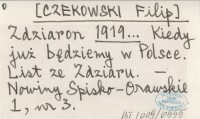 [CZEKOWSKI Filip]
Zdziaron 1919... Kiedy
już będziemy w Polsce.
List ze Zdziaru. –
Nowiny Spisko-Orawskie
1, nr 3.